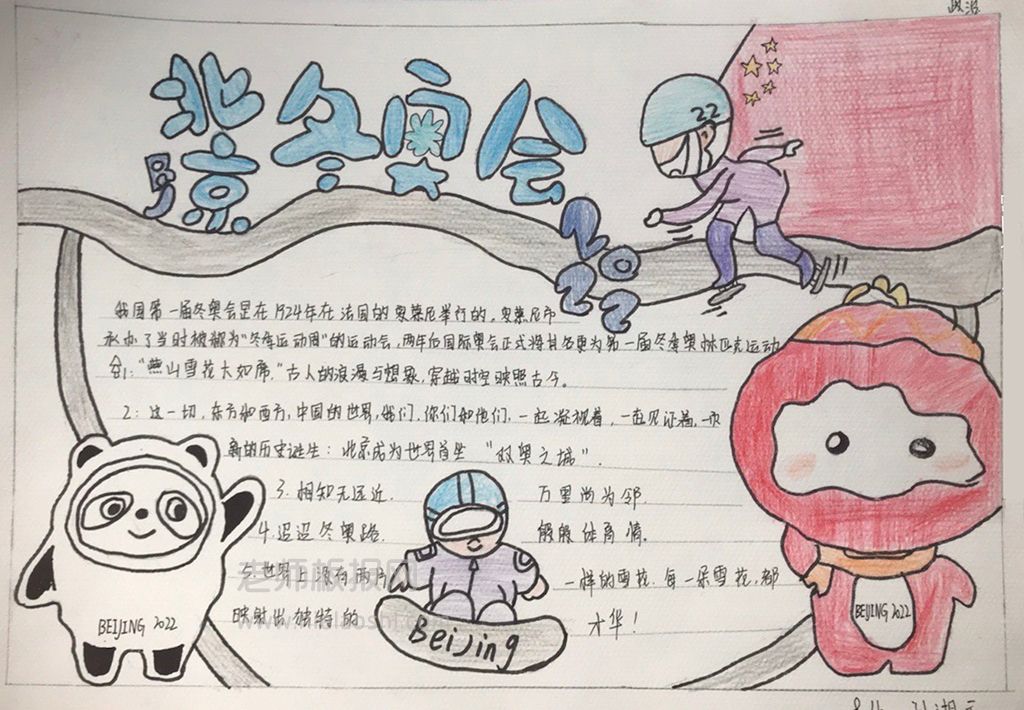 北京冬奥会
2022
22
我国第一届冬奥会是在1924年在法国的夏慕尼举行的。夏慕尼市
承办了当时被称为"冬季运动周"的运动会,两年后国际奥会正式将其名更为第一届冬季奥林匹克运动
会1:"燕山雪花大如席,"古人的浪漫与想象,穿越时空映照古今。
2:这一切,东方和西方,中国的世界,我们,你们和他们,一起凝视着,一直见证着,一次
新的历史诞生:北京成为世界首座 "双奥之城".
3.相知无远近. 万里尚为邻.
4.迢迢冬奥路. 殷殷体育情。
世界上没有两片 一样的雪花.每一朵雪花,都
映射出独特的 才华!
BEIJING 2022
Beijing
BEIJING 2022
老师板报网